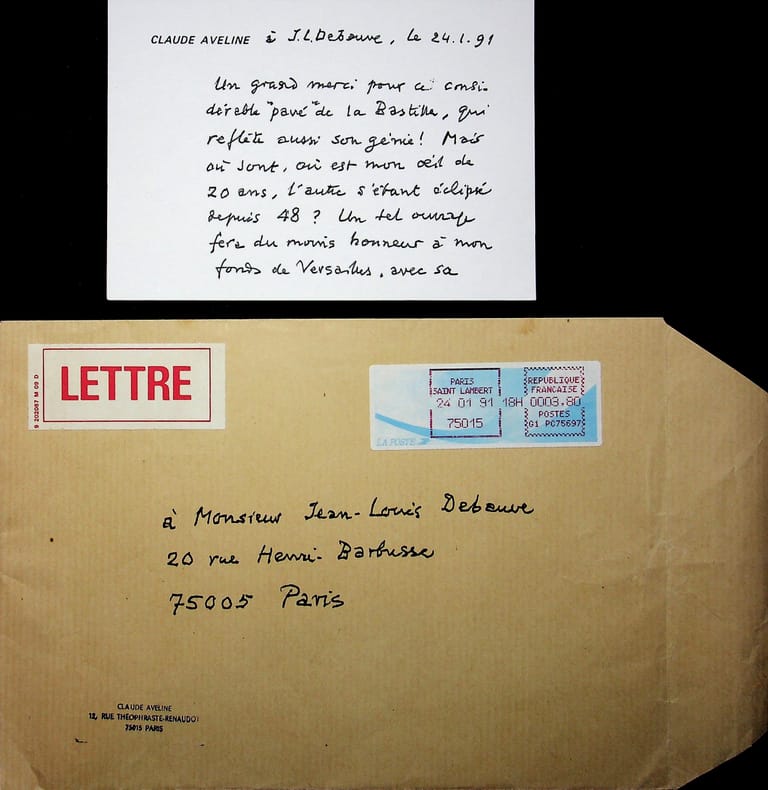 CLAUDE AVELINE à J.L. Debauve, le 24.1.91
Un grand merci pour ce consi-
dérable "pavé" de la Bastille, qui
reflète aussi son génie! Mais
où sont, où est mon œil de
20 ans, l'autre s'étant éclipsé
depuis 48 ? Un tel ouvrage
fera du moins honneur à mon
fonds de Versailles, avec sa
LETTRE
9 202087 M 09 D
PARIS
SAINT LAMBERT
24 01 91 18H
75015
REPUBLIQUE
FRANCAISE
0003,80
POSTES
G1 PC75697
LA POSTE
à Monsieur Jean-Louis Debauve
20 rue Henri-Barbusse
75005 Paris
CLAUDE AVELINE
12, RUE THÉOPHRASTE-RENAUDOT
75015 PARIS